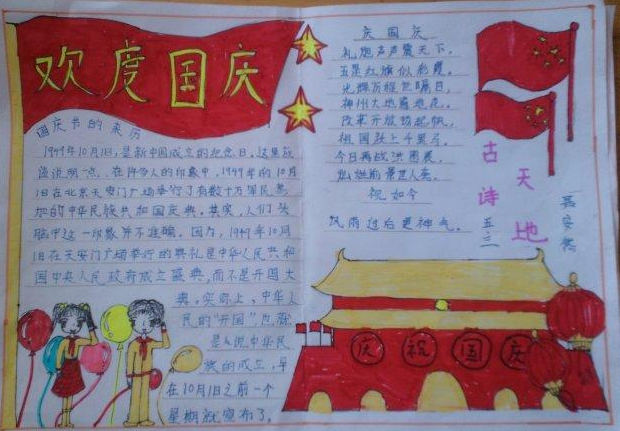 欢度国庆
国庆节的来历
1949年10月1日,是新中国成立的纪念日。这里应
该说明一点,在许多人的印象中,1949年的10月
1日在北京天安门广场举行了有数十万军民参
加的中华民族共和国庆典。其实,人们头
脑中这一印象并不准确。因为,1949年10月
1日在天安门广场举行的典礼是中华人民共和
国中央人民政府成立盛典,而不是开国大
典。实际上,中华人
民的"开国",也就
是人说中华民
族的成立,早
在10月1日之前一个
星期就宣布了。
庆国庆
礼炮声声震天下,
五星红旗似彩霞。
光辉历程包瞩目,
神州大地遍地花。
改革开放扬起帆,
祖国跃上千里马。
今日再战洪图展,
祝如今
风雨过后更神气。
古诗
天地
五·三
庆祝国庆